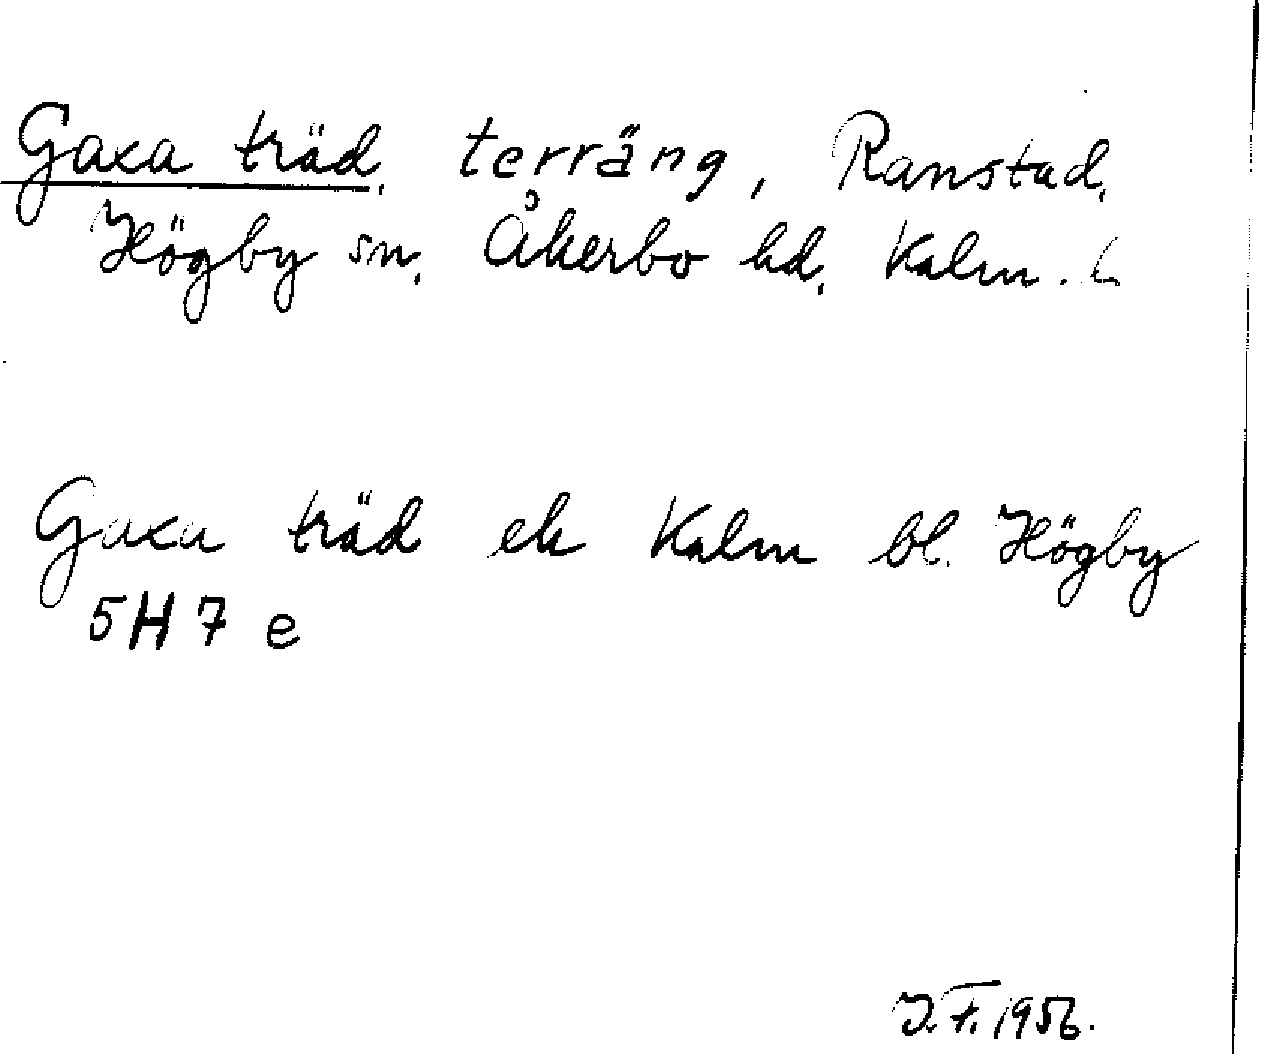 Gaxa träd, terräng, Ranstad,
Högby sn, Åkerbo hd, Kalm. L
Gaxa träd ek Kalm bl. Högby
5H 7 e
J.F. 1956.